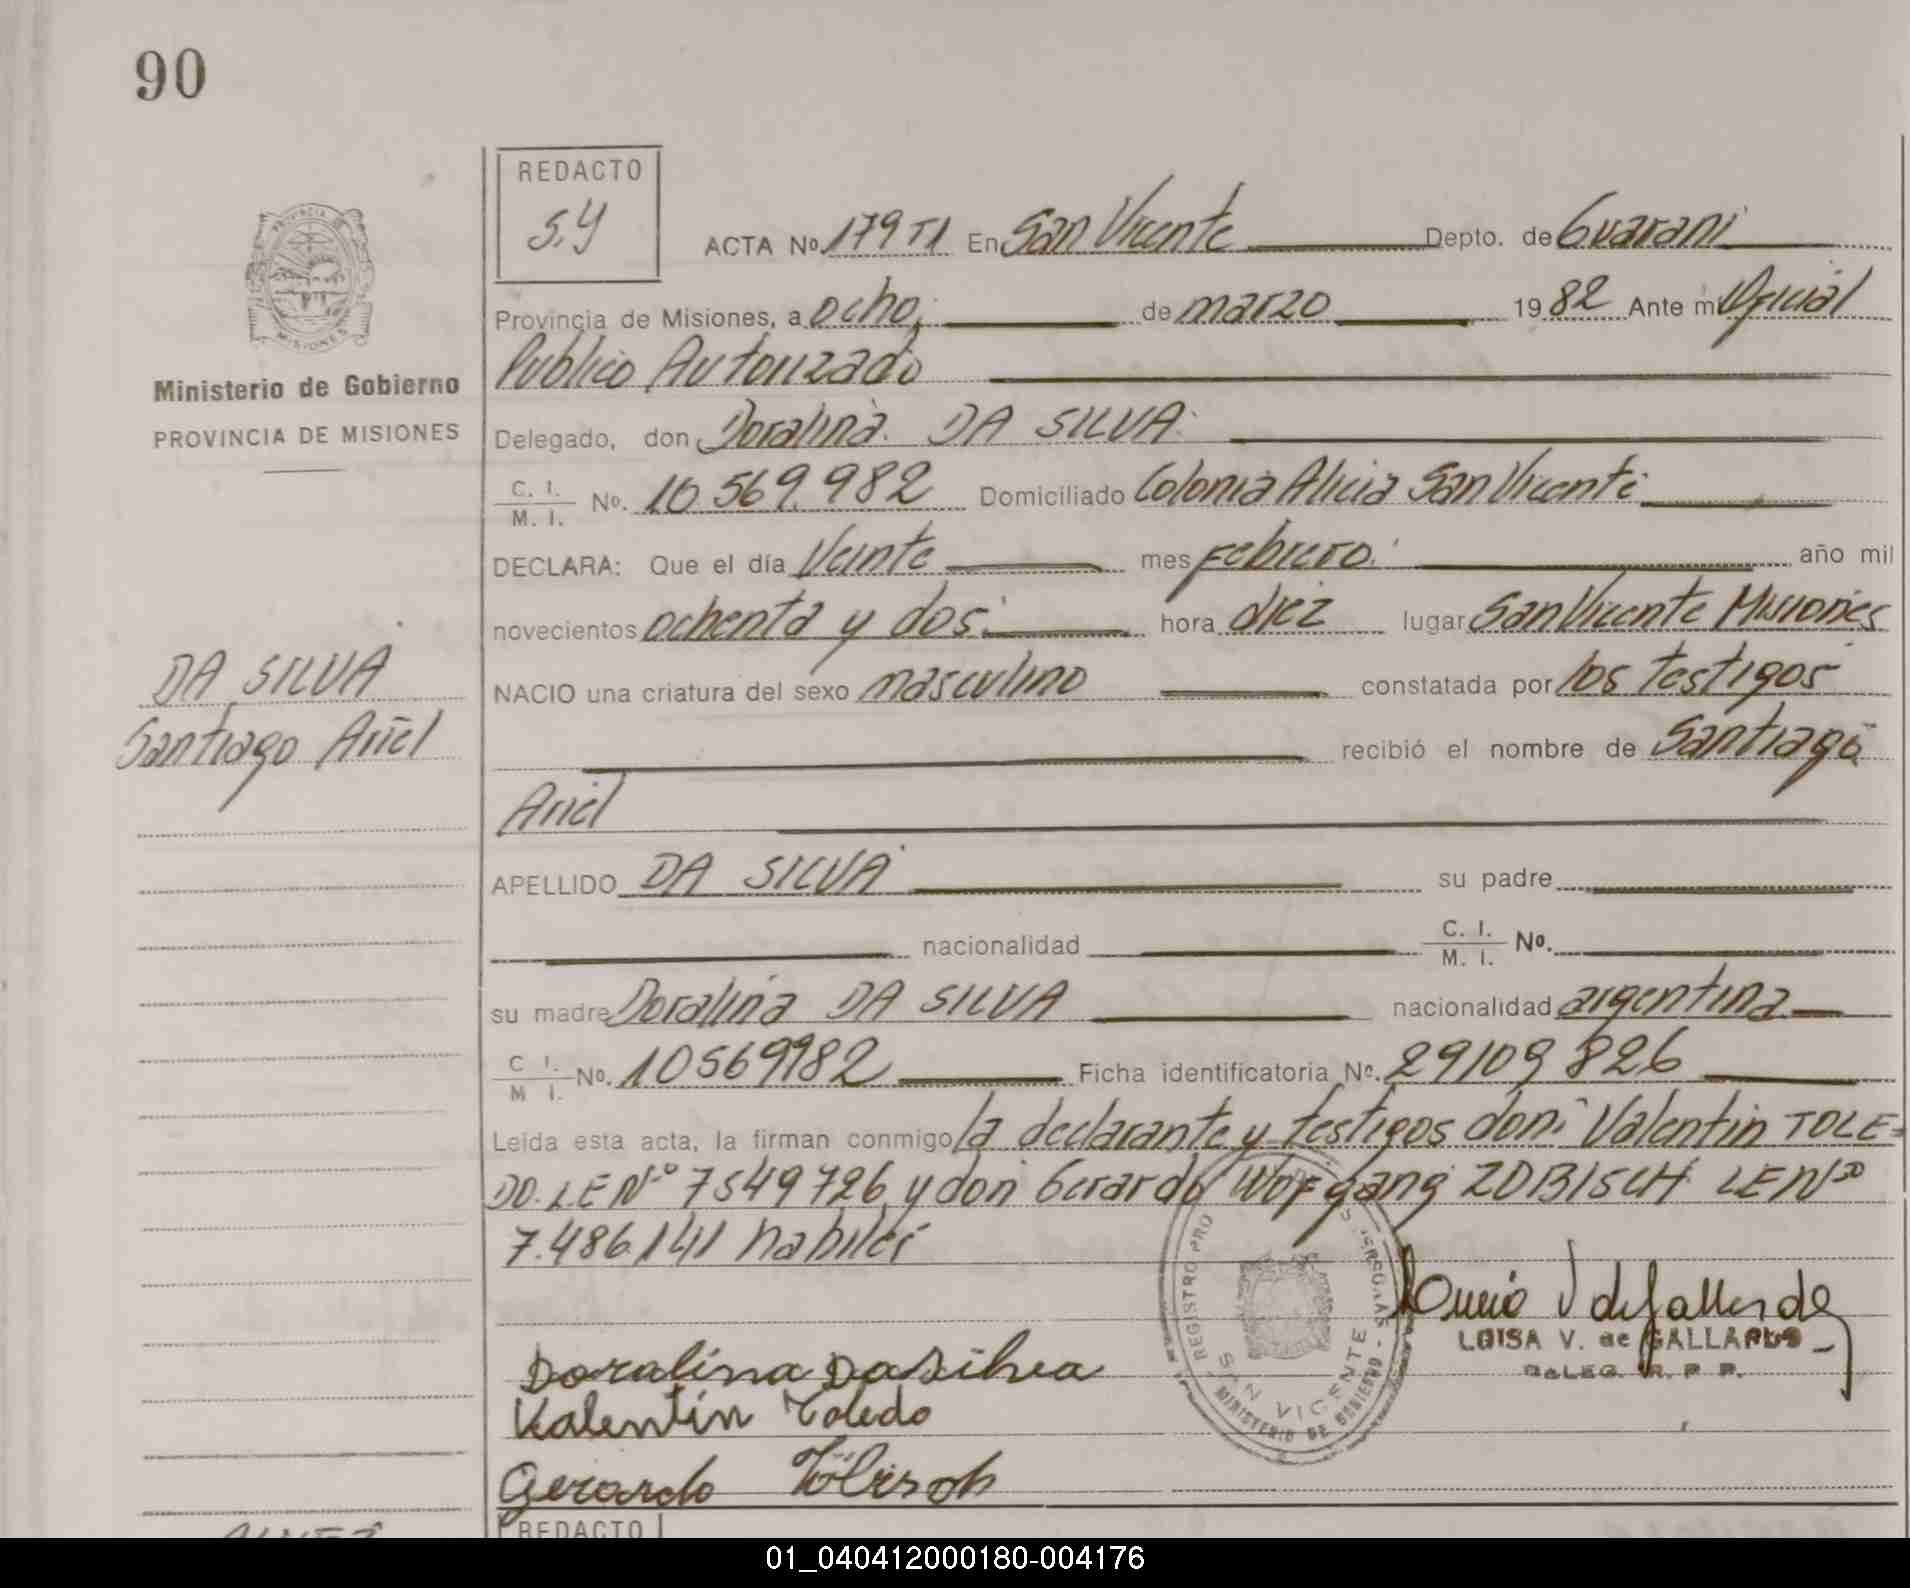 90
REDACTO
S.Y
ACTA Nº 179 T1 En San Vicente Depto. de Guarani
Provincia de Misiones, a ocho, de marzo 1982 Ante mi Oficial
Publico Autorizado
Delegado, don Doralina DA SILVA
C. I. / M. I. Nº. 10.569.982 Domiciliado Colonia Alicia San Vicente
DECLARA: Que el día Veinte mes Febrero. año mil
novecientos ochenta y dos. hora diez lugar San Vicente Misiones
NACIO una criatura del sexo masculino constatada por los testigos
recibió el nombre de Santiago
Ariel
APELLIDO DA SILVA su padre
nacionalidad C. I. / M. I. Nº.
su madre Doralina DA SILVA nacionalidad argentina
C I. / M I. Nº. 10569982 Ficha identificatoria Nº. 29109826
Leida esta acta, la firman conmigo la declarante y testigos don: Valentin TOLE=
DO. LE Nº 7549726 y don Gerardo Wofgang ZOBISCH LE Nº
7.486.141 habiles
Doralina Da Silvea
Valentin Toledo
Gerardo Zöbisch
LUISA V. de GALLARDO
DELEG. R. P. P.
REGISTRO PRO
PERSONAS
SAN VICENTE
MINISTERIO DE GOBIERNO
PROVINCIA DE
MISIONES
Ministerio de Gobierno
PROVINCIA DE MISIONES
DA SILVA
Santiago Ariel
REDACTO
01_040412000180-004176